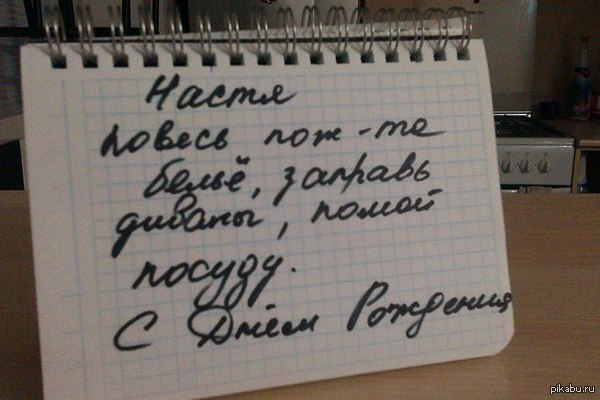 Настя
повесь пож-та
бельё, заправь
диваны, помой
посуду.
С Днём Рождения
pikabu.ru